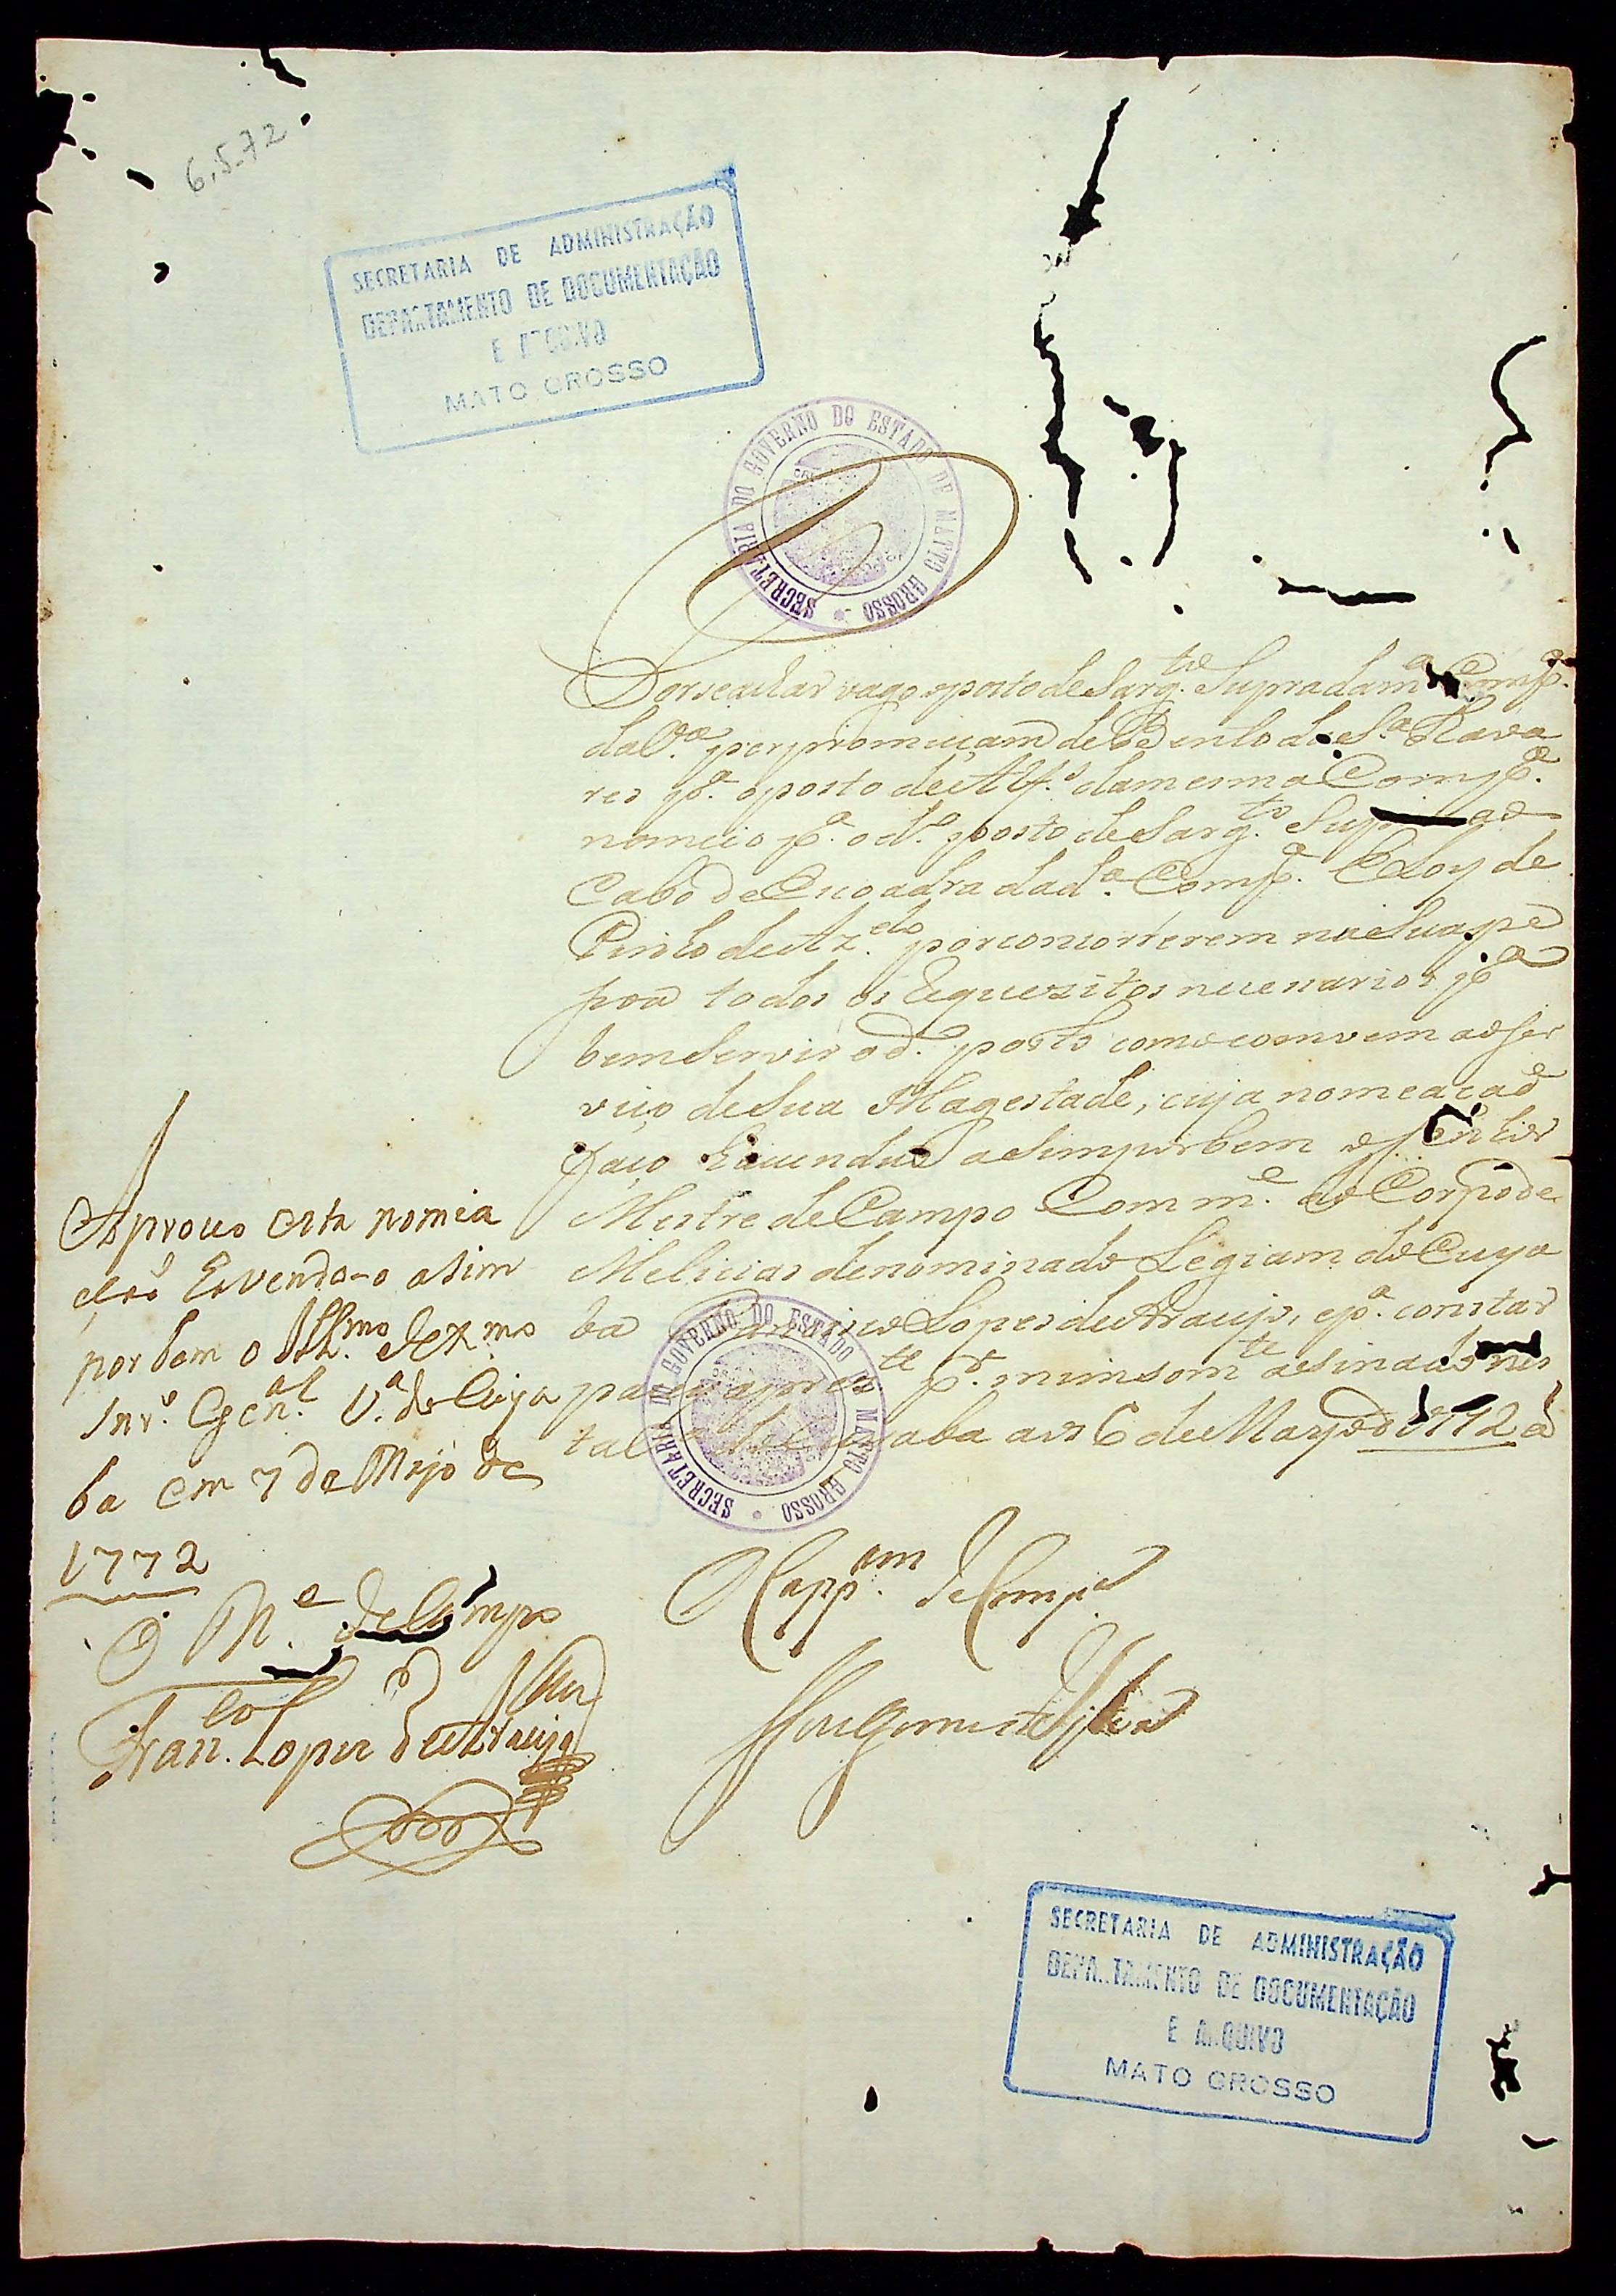 6.5.72
SECRETARIA DE ADMINISTRAÇÃO
DEPARTAMENTO DE DOCUMENTAÇÃO
E ARQUIVO
MATO GROSSO
SECRETARIA DO GOVERNO DO ESTADO DE MATTO GROSSO
Por se achar vago o posto de Sarg.to Supra da m.a Comp.a
da V.a por promuçam de Bento de S.a Tava
res p.a o posto de Alf.s da mesma Comp.a
nomeio p.a o d.o posto de Sarg.to Sup ao
Cabo de Escoadra da d.a Comp.a Eloy de
Pinto de Az.edo por comcorrerem na Sua pe
soa todos os Requezitos necesarios p.a
bem Servir o d.o posto como comvem ao Ser
viço de Sua Magestade, cuja nomeacaõ
faço havendo asim por bem o Senhor
Mestre de Campo Comm.e do Corpo de
Melicias denominado Legiam do Cuya
ba Lopes de Araujo, e p.a constar
pacei a prez.te p.r mim som.te asinado nes
ta aba aos 6 de Mayo d 1772 a
SECRETARIA DO GOVERNO DO ESTADO DE MATTO GROSSO
Aprovo esta nomia
ção Evendo-o asim
por bem o Ill.mo e Ex.mo
Snr.o Gen.al V.a do Cuya
ba em 7 de Mayo de
1772
O M.e de Campo
Fran.co Lopes de Araujo
O Capp.am de Comp.a
SECRETARIA DE ADMINISTRAÇÃO
DEPARTAMENTO DE DOCUMENTAÇÃO
E ARQUIVO
MATO GROSSO